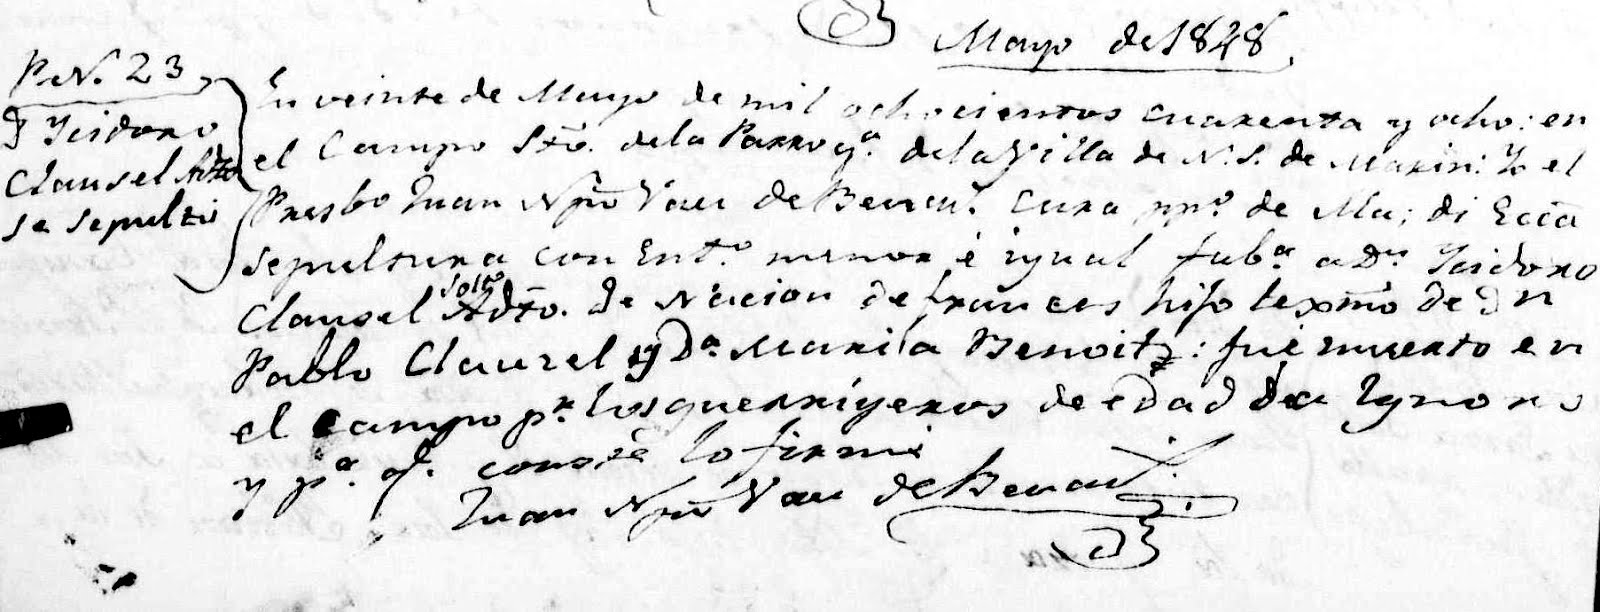 Mayo de 1848,
P. N. 23
Dn Ysidoro
Clausel Adto
se sepultó
En veinte de Mayo de mil ochocientos cuarenta y ocho: en
el Campo Sto. de la Parroqa. de la Villa de N. S. de Marin: Yo el
Presbo Juan Npno de cura ppo. de Ma; di Ecca
sepultura con Ento. menor é igual fuba. a Dn. Ysidoro
Clausel solto Adto. de Nacion de frances hijo lexmo de dn
Pablo Clauzel y Da. María Benoitz: fué muerto en
el campo pr. los guerrigeros de edad de Ygnoro
y pa. q. conste lo firmé
Juan Npno de